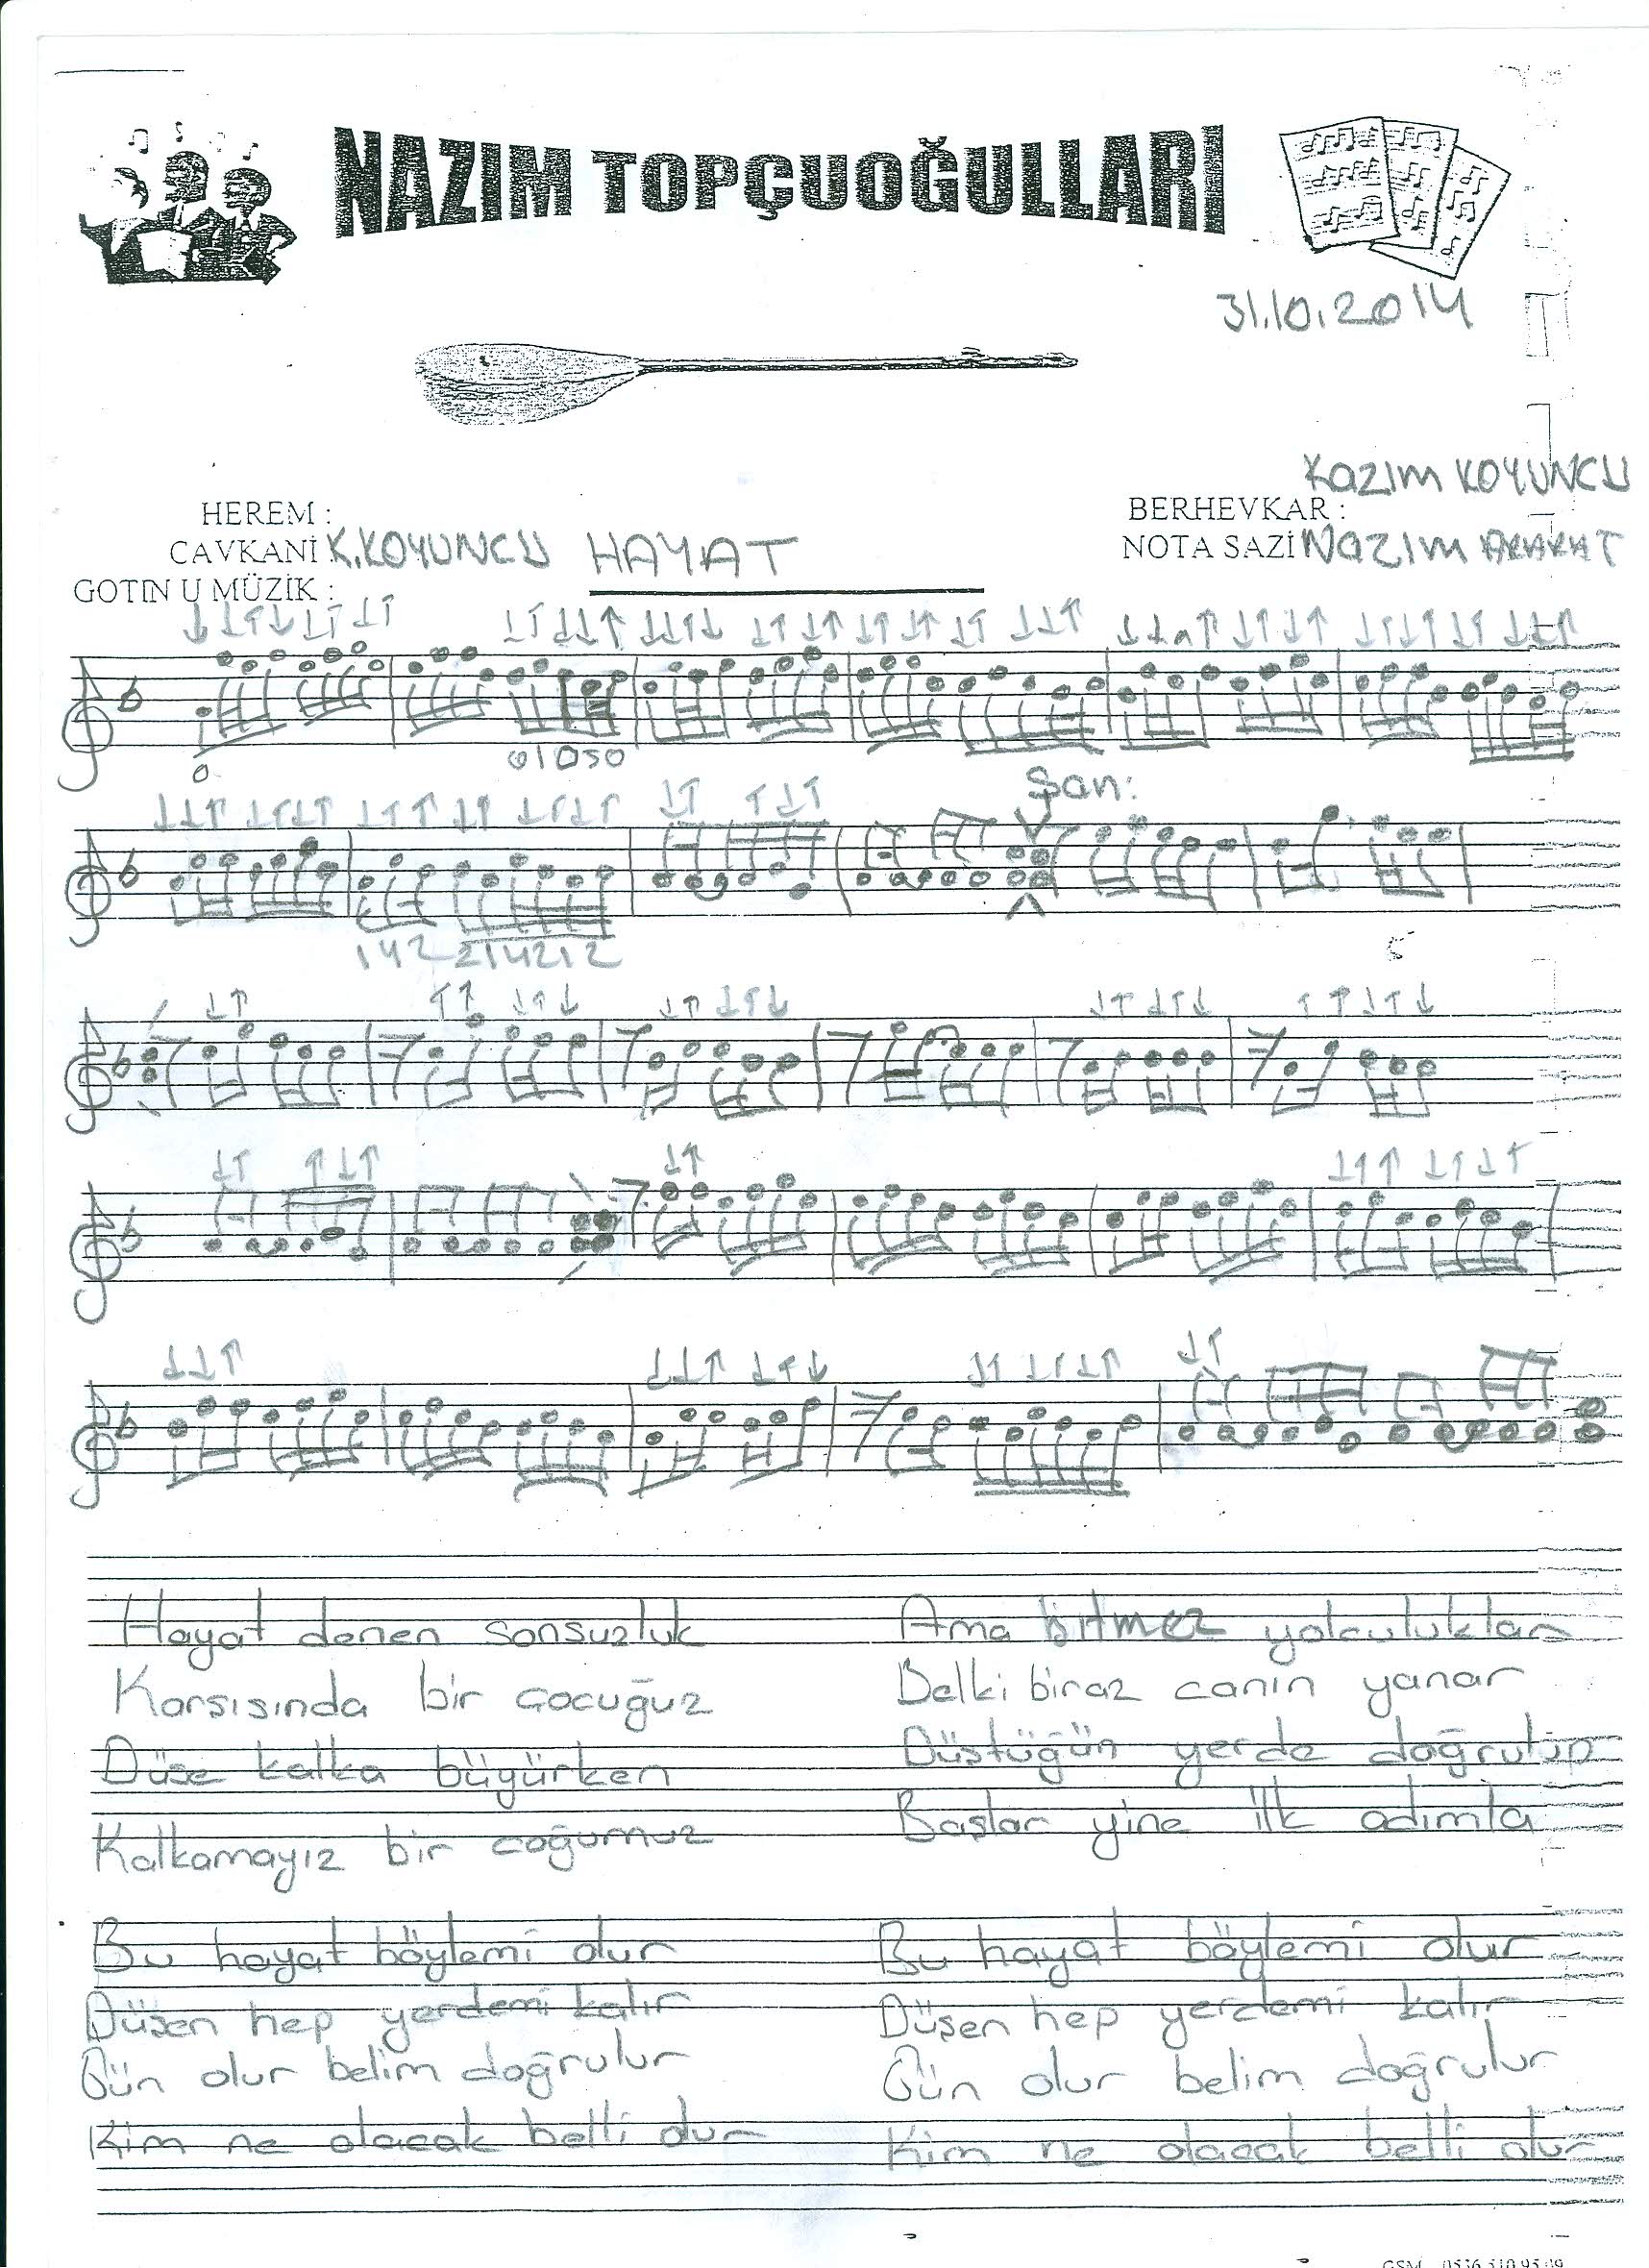 NAZIM TOPÇUOĞULLARI
31.10.2014
KAZIM KOYUNCU
HEREM :
BERHEVKAR :
CAVKANİ : K.KOYUNCU
HAYAT
NOTA SAZİ NAZIM
GOTIN U MÜZİK :
0
0 1 0 5 0
Şan:
1 4 2 2 1 4 2 1 2
5
Hayat denen sonsuzluk
Karşısında bir çocuğuz
Düşe kalka büyürken
Kalkamayız bir çoğumuz
Ama bitmez yolculuklar
Belki biraz canın yanar
Düştüğün yerde doğrulup
Başlar yine ilk adımla
Bu hayat böylemi olur
Düşen hep yerdemi kalır
Gün olur belim doğrulur
Kim ne olacak belli olur
Bu hayat böylemi olur
Düşen hep yerdemi kalır
Gün olur belim doğrulur
Kim ne olacak belli olur